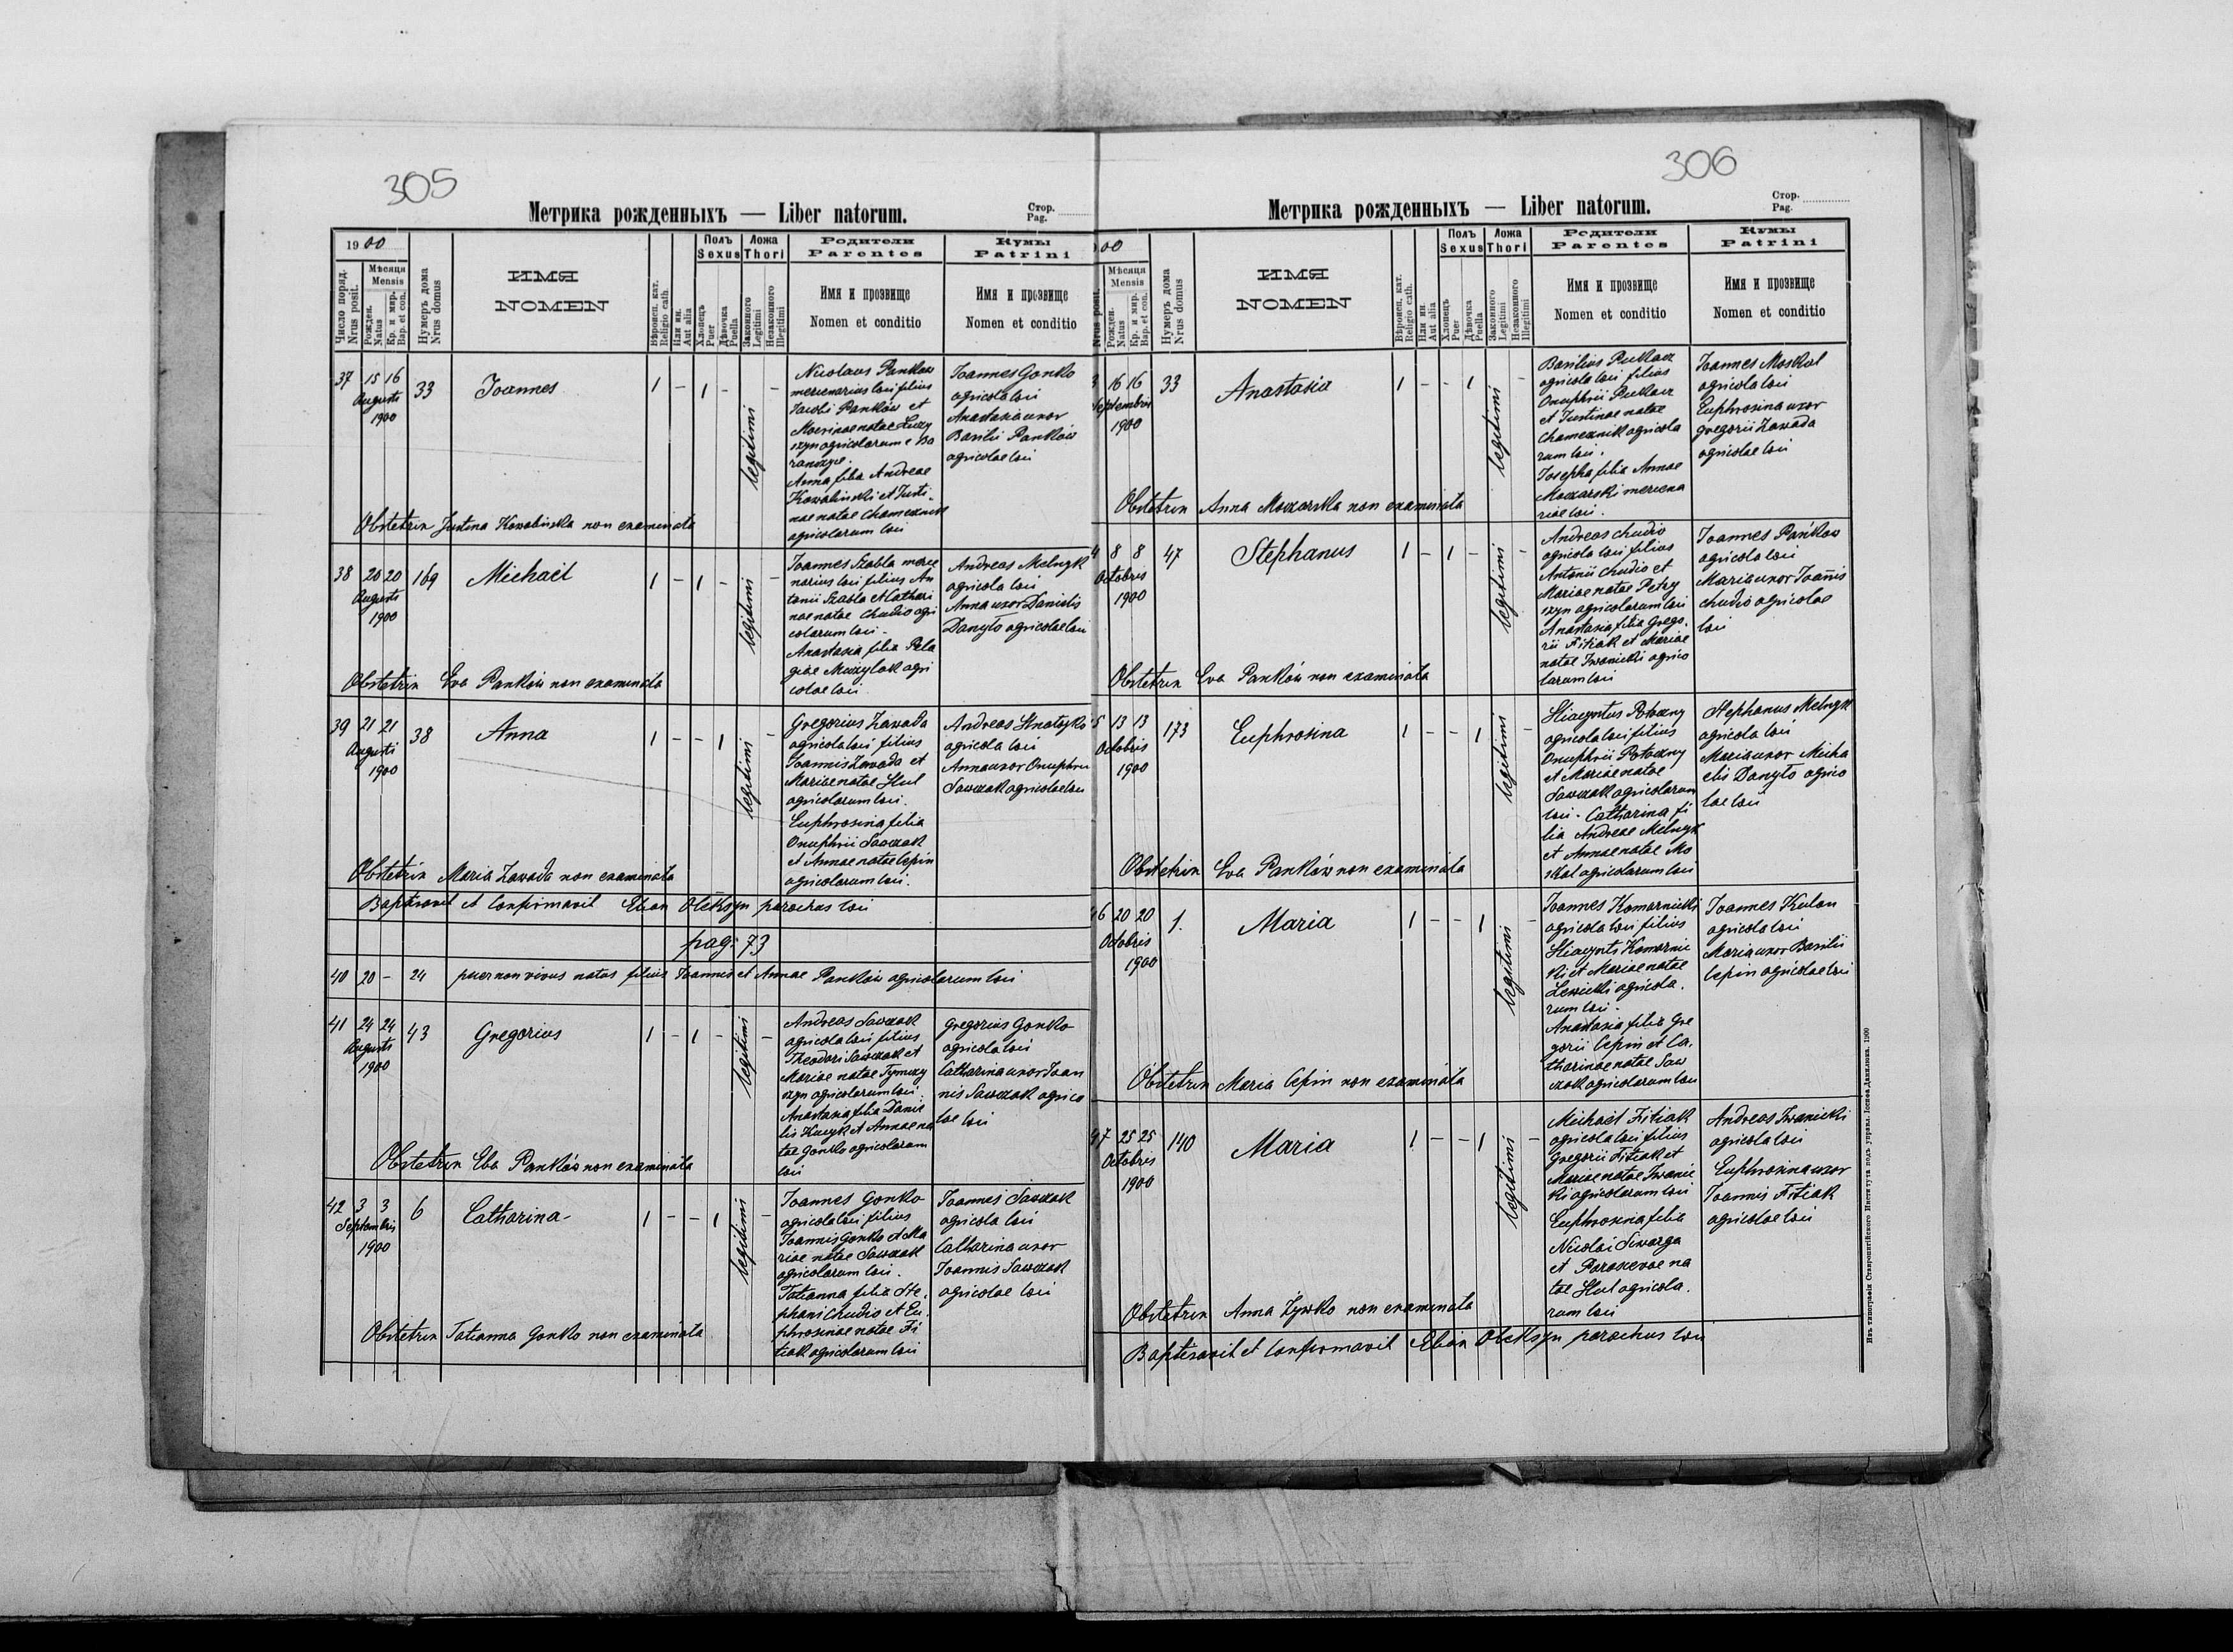 305
Метрика рожденныхъ — Liber natorum.
Стор.
Pag.
1900
Число поряд.
Nrus posit.
Мѣсяця
Mensis
Рожден.
Natus
Кр. и мир.
Bap. et con.
Нумеръ дома
Nrus domus
ИМЯ
NOMEN
Вѣроисп. кат.
Religio cath.
Или ин.
Aut alia
Полъ
Sexus
Хлопецъ
Puer
Дѣвочка
Puella
Ложа
Thori
Законного
Legitimi
Незаконного
Illegitimi
Родители
Parentes
Имя и прозвище
Nomen et conditio
Кумы
Patrini
Имя и прозвище
Nomen et conditio
37 15 16 33 Joannes 1 - 1 - legitimi -
Augusti
1900
Nicolaus Panków
mercenarius loci filius
Jacobi Panków et
natae Luczy
szyn agricolarum e Ba
ranczyce.
Anna filia Andreae
Kowalinski et Justi-
nae natae Chomeznik
agricolarum loci
Joannes Gonko
agricola loci
Anastasia uxor
Basilii Panków
agricolae loci
Obstetrix Justina Kowalinska non examinata
38 20 20 169 Michaël 1 - 1 - legitimi -
Augusti
1900
Joannes Szabla merce
narius loci filius An
tonii Szabla et Cathari
nae natae Chudio agri
colarum loci.
Anastasia filia Pela
giae Muzylak agri
colae loci.
Andreas Melnyk
agricola loci
Anna uxor Danielis
Danyło agricolae loci
Obstetrix Eva Panków non examinata
39 21 21 38 Anna 1 - - 1 legitimi -
Augusti
1900
Gregorius Zawada
agricola loci filius
Joannis Zawada et
Mariae natae Hul
agricolarum loci.
Euphrosina filia
Onuphrii Sawczak
et Annae natae Cepin
agricolarum loci.
Andreas Hnatyko
agricola loci
Anna uxor Onuphrii
Sawczak agricolae loci
Obstetrix Maria Zawada non examinata
Baptisavit et Confirmavit Elian Oleksyn parochus loci
pag: 73
40 20 - 24 puer non vivus natus filius Joannis et Annae Panków agricolarum loci
41 24 24 43 Gregorius 1 - 1 - legitimi -
Augusti
1900
Andreas Sawczak
agricola loci filius
Theodori Sawczak et
Mariae natae Tymczy
szyn agricolarum loci.
Anastasia filia Danie
lis Kucyk et Annae na
tae Gonko agricolarum
loci
Gregorius Gonko
agricola loci
Catharina uxor Joan
nis Sawczak agrico
lae loci
Obstetrix Eva Panków non examinata
42 3 3 6 Catharina- 1 - - 1 legitimi -
Septembris
1900
Joannes Gonko
agricola loci filius
Joannis Gonko et Ma
riae natae Sawczak
agricolarum loci.
Tatianna filia Ste.
phani Chudio et Eu.
phrosinae natae Fi
tiak agricolarum loci
Joannes Sawczak
agricola loci
Catharina uxor
Joannis Sawczak
agricolae loci
Obstetrix Tatianna Gonko non examinata
306
Метрика рожденныхъ — Liber natorum.
Стор.
Pag.
00
Nrus posit.
Мѣсяця
Mensis
Рожден.
Natus
Кр. и мир.
Bap. et con.
Нумеръ дома
Nrus domus
ИМЯ
NOMEN
Вѣроисп. кат.
Religio cath.
Или ин.
Aut alia
Полъ
Sexus
Хлопецъ
Puer
Дѣвочка
Puella
Ложа
Thori
Законного
Legitimi
Незаконного
Illegitimi
Родители
Parentes
Имя и прозвище
Nomen et conditio
Кумы
Patrini
Имя и прозвище
Nomen et conditio
3 16 16 33 Anastasia 1 - - 1 legitimi -
Septembris
1900
Basilius Pukacz
agricola loci filius
Onuphrii Pukacz
et Justinae natae
Chomeznik agricola
rum loci.
Josepha filia Annae
Moczarski mercena
riae loci.
Joannes Moskal
agricola loci
Euphrosina uxor
Gregorii Zawada
agricolae loci
Obstetrix Anna Moczarska non examinata
4 8 8 47 Stephanus 1 - 1 - legitimi -
Octobris
1900
Andreas Chudio
agricola loci filius
Antonii Chudio et
Mariae natae Petry
szyn agricolarum loci
Anastasia filia Grego.
rii Fitiak et Mariae
natae Iwanicki agrico
larum loci
Joannes Panków
agricola loci
Maria uxor Joannis
Chudio agricolae
loci
Obstetrix Eva Panków non examinata
5 13 13 173 Euphrosina 1 - - 1 legitimi -
Octobris
1900
Hiacyntus Potoczny
agricola loci filius
Onuphrii Potoczny
et Mariae natae
Sawczak agricolarum
loci. Catharina fi
lia Andreae Melnyk
et Annae natae Mo
skal agricolarum loci
Stephanus Melnyk
agricola loci
Maria uxor Micha
elis Danyło agrico
lae loci
Obstetrix Eva Panków non examinata
46 20 20 1. Maria 1 - - 1 legitimi -
Octobris
1900
Joannes Komarnicki
agricola loci filius
Hiacynti Komarnic
ki et Mariae natae
Lewicki agricola.
rum loci.
Anastasia filia Gre
gorii Cepin et Ca.
tharinae natae Saw
czak agricolarum loci
Joannes Kulan
agricola loci
Maria uxor Basilii
Cepin agricolae loci
Obstetrix Maria Cepin non examinata
47 25 25 140 Maria 1 - - 1 legitimi -
Octobris
1900
Michaël Fitiak
agricola loci filius
Gregorii Fitiak et
Mariae natae Iwanic
ki agricolarum loci
Euphrosina filia
Nicolai Siwarga
et Parascevae na
tae Hul agricola.
rum loci
Andreas Iwanicki
agricola loci
Euphrosina uxor
Joannis Fitiak
agricolae loci
Obstetrix Anna Żywko non examinata
Baptisavit et Confirmavit Elian Oleksyn parochus loci
Изъ типографіи Ставропигійского Института подъ управл. Іосифа Данилюка. 1900